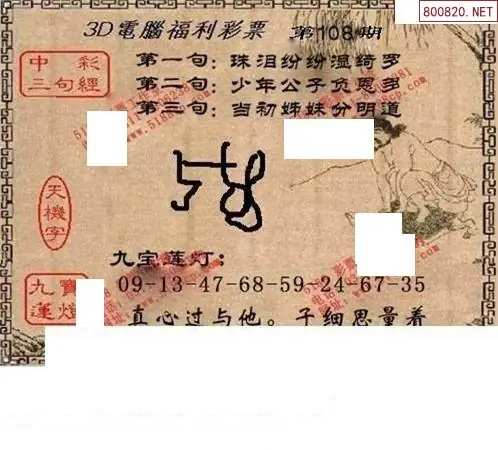 800820.NET
3D電腦福利彩票 第108期
中彩
三句經
第一句：珠泪纷纷湿绮罗
第二句：少年公子负恩多
第三句：当初姊妹分明道
天機字
九宝莲灯：
九寶蓮燈
09-13-47-68-59-24-67-35
真心过与他。子细思量着